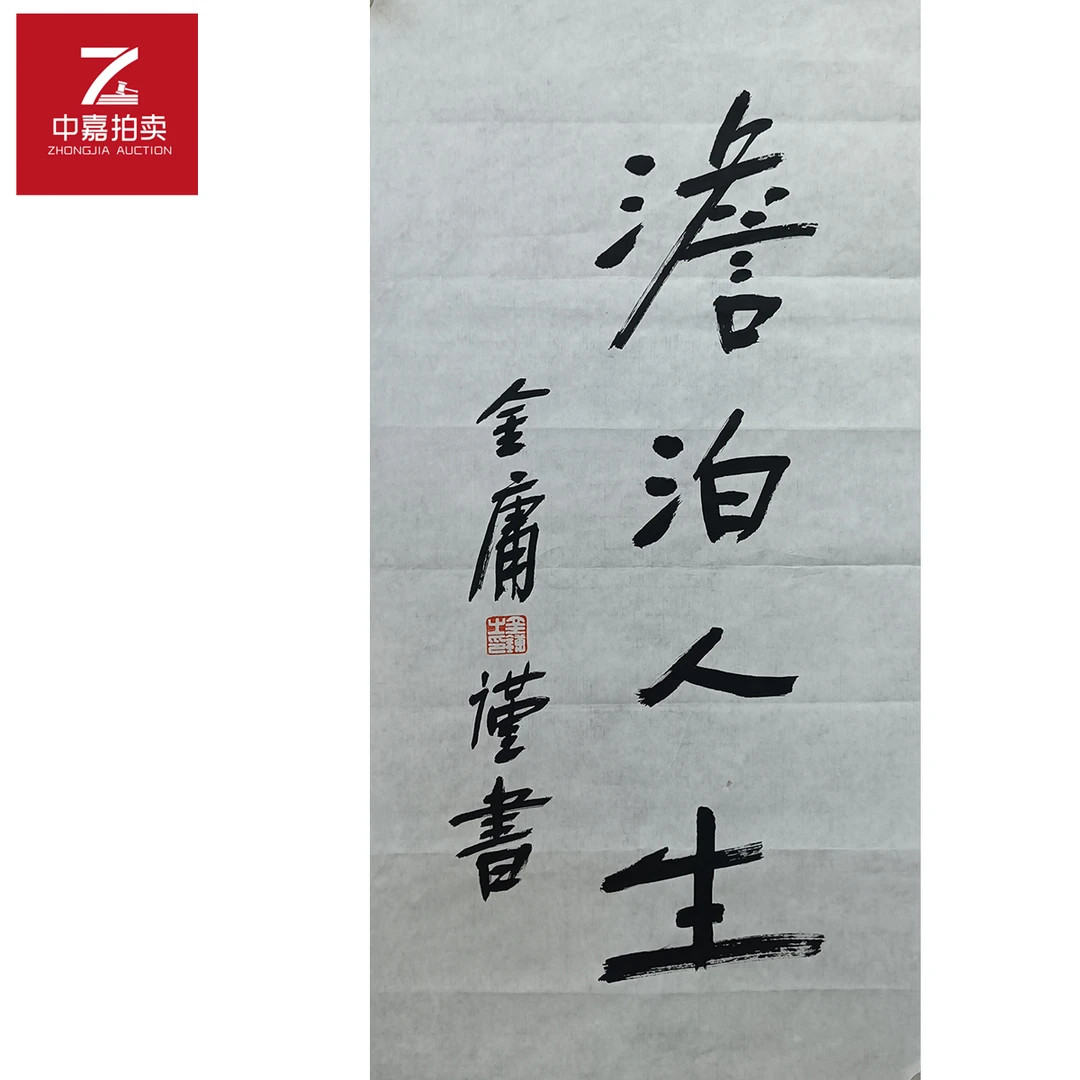 中嘉拍卖
ZHONGJIA AUCTION
澹泊人生
金庸
謹書